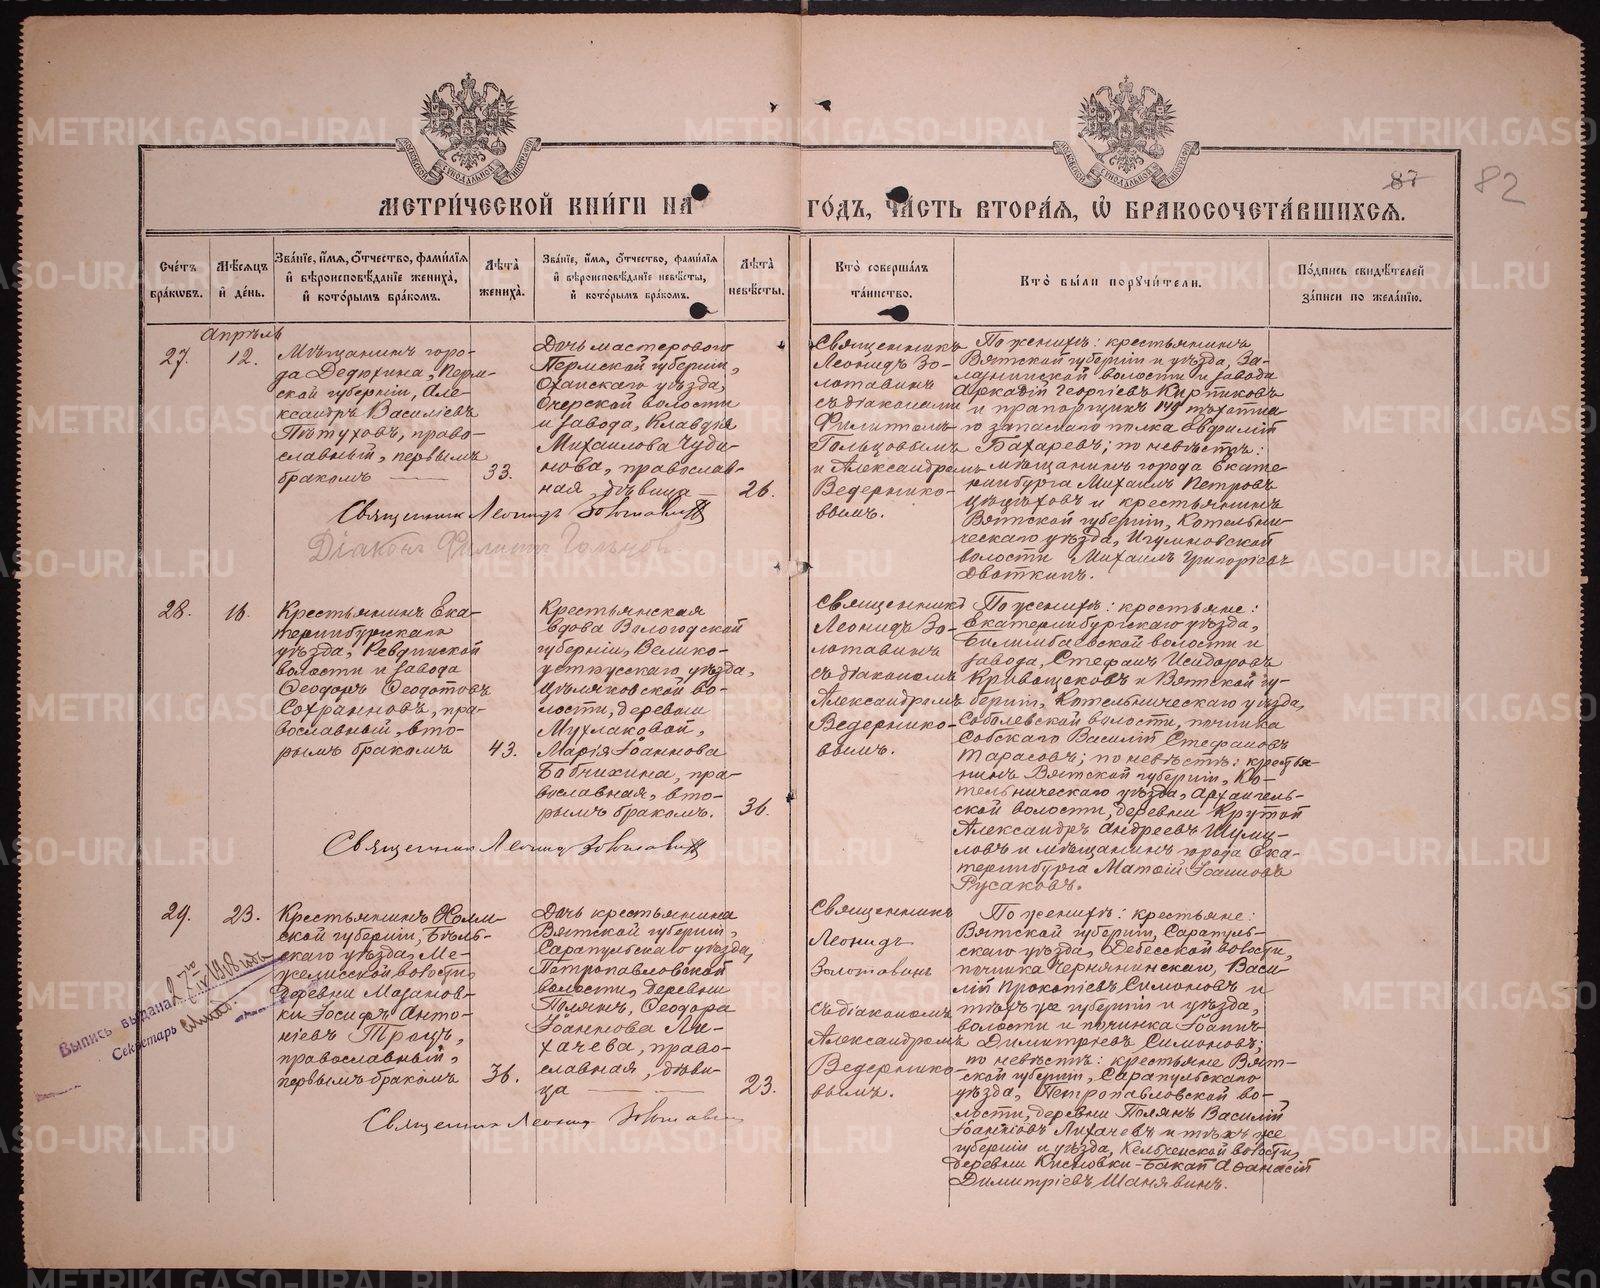 МЕТРИ́ЧЕСКОЙ КНИ́ГИ НА
ГО́ДЪ, ЧА́СТЬ ВТОРА́Я, Ѡ БРАКОСОЧЕТА́ВШИХСЯ.
87
82
Сче́тъ бра́ковъ.
Мѣ́сяцъ и де́нь.
Зва́нїе, и́мя, о́тчество, фами́лїя и вѣроисповѣ́данїе жениха́, и кото́рымъ бра́комъ.
Лѣ́та жениха́.
Зва́нїе, и́мя, о́тчество, фами́лїя и вѣроисповѣ́данїе невѣ́сты, и кото́рымъ бра́комъ.
Лѣ́та невѣ́сты.
Кто́ соверша́лъ та́инство.
Кто́ бы́ли поручи́тели.
По́дпись свидѣ́телей за́писи по жела́нїю.
Апрѣль
27.
12.
Мѣщанинъ горо-
да Дедюхина, Перм-
ской губерніи, Але-
ксандръ Василіевъ
Пѣтуховъ, право-
славный, первымъ
бракомъ
33.
Дочь мастерового
Пермской губерніи,
Оханскаго уѣзда,
Очерской волости
и завода, Клавдія
Михаилова Чуди-
нова, православ-
ная, дѣвица
26.
Священникъ
Леонидъ Зо-
лотавинъ
съ діаконами
Филиппомъ
Гольцовымъ
и Александромъ
Ведернико-
вымъ.
По женихѣ: крестьянинъ
Вятской губерніи и уѣзда, За-
волости и завода
Аркадій Георгіевъ Кирпиковъ
и прапорщикъ 149 пѣхотна-
го запаснаго полка Евфимій
Бахаревъ; по невѣстѣ:
мѣщанинъ города Екате-
ринбурга Михаилъ Петровъ
и крестьянинъ
Вятской губерніи, Котельни-
ческаго уѣзда, Игумновской
волости Михаилъ Григорьевъ
Двоткинъ.
Священникъ Леонидъ Золотавинъ
Діаконъ Филиппъ Гольцовъ
28.
16.
Крестьянинъ Ека-
теринбургскаго
уѣзда, Ревдинской
волости и завода
Ѳеодоръ Ѳеодотовъ
Сохранновъ, пра-
вославный, вто-
рымъ бракомъ
43.
Крестьянская
вдова Вологодской
губерніи, Велико-
устюгскаго уѣзда,
Цѣляковской во-
лости, деревни
Мухлаковой,
Марія Іоаннова
Бабчихина, пра-
вославная, вто-
рымъ бракомъ.
36.
Священникъ
Леонидъ Зо-
лотавинъ
съ діакономъ
Александромъ
Ведернико-
вымъ.
По женихѣ: крестьяне:
Екатеринбургскаго уѣзда,
Билимбаевской волости и
завода, Стефанъ Исидоровъ
Кривощековъ и Вятской гу-
берніи, Котельническаго уѣзда,
Соболевской волости, починка
Собскаго Василій Стефановъ
Тарасовъ; по невѣстѣ: крестья-
нинъ Вятской губерніи, Ко-
тельническаго уѣзда, Архангель-
ской волости, деревни Крутой
Александръ Андреевъ Шуми-
ловъ и мѣщанинъ города Ека-
теринбурга Матѳій Іоанновъ
Русаковъ.
Священникъ Леонидъ Золотавинъ
29.
23.
Крестьянинъ Холм-
ской губерніи, Бѣль-
скаго уѣзда, Ме-
волости,
деревни Мазанов-
ки Іосифъ Анто-
ніевъ Троцъ,
православный,
первымъ бракомъ
36.
Дочь крестьянина
Вятской губерніи,
Сарапульскаго уѣзда,
Петропавловской
волости, деревни
Полянъ, Ѳеодора
Іоаннова Ли-
хачева, право-
славная, дѣви-
ца
23.
Священникъ
Леонидъ
Золотавинъ
съ діакономъ
Александромъ
Ведернико-
вымъ.
По женихѣ: крестьяне:
Вятской губерніи, Сарапуль-
скаго уѣзда, Дебесской волости,
починка Чернянинскаго, Васи-
лій Прокопіевъ Симоновъ и
тѣхъ же губерніи и уѣзда,
волости и починка Іоаннъ
Димитріевъ Симоновъ;
по невѣстѣ: крестьяне Вят-
ской губерніи, Сарапульскаго
уѣзда, Петропавловской во-
лости, деревни Полянъ Василій
Іоанновъ Лихачевъ и тѣхъ же
губерніи и уѣзда, волости,
деревни Кисловки-Бакай Аѳанасій
Димитріевъ Шанявинъ.
Священникъ Леонидъ Золотавинъ
Выпись выдана 1918 года
Секретарь
METRIKI.GASO-URAL.RU